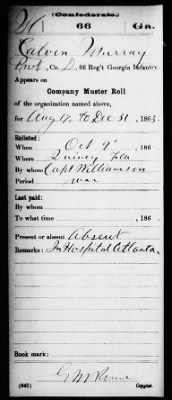 (Confederate.)
M 66 Ga.
Calvin Murray
Pvt, Co. D, 66 Reg't Georgia Infantry.
Appears on
Company Muster Roll
of the organization named above,
for Aug 17, to Dec 31, 1863.
Enlisted:
When Oct 9, 186
Where Quincy Fla
By whom Capt Williamson
Period war
Last paid:
By whom
To what time , 186 .
Present or absent Absent
Remarks: In Hospital Atlanta
Book mark:
(642) Copyist.